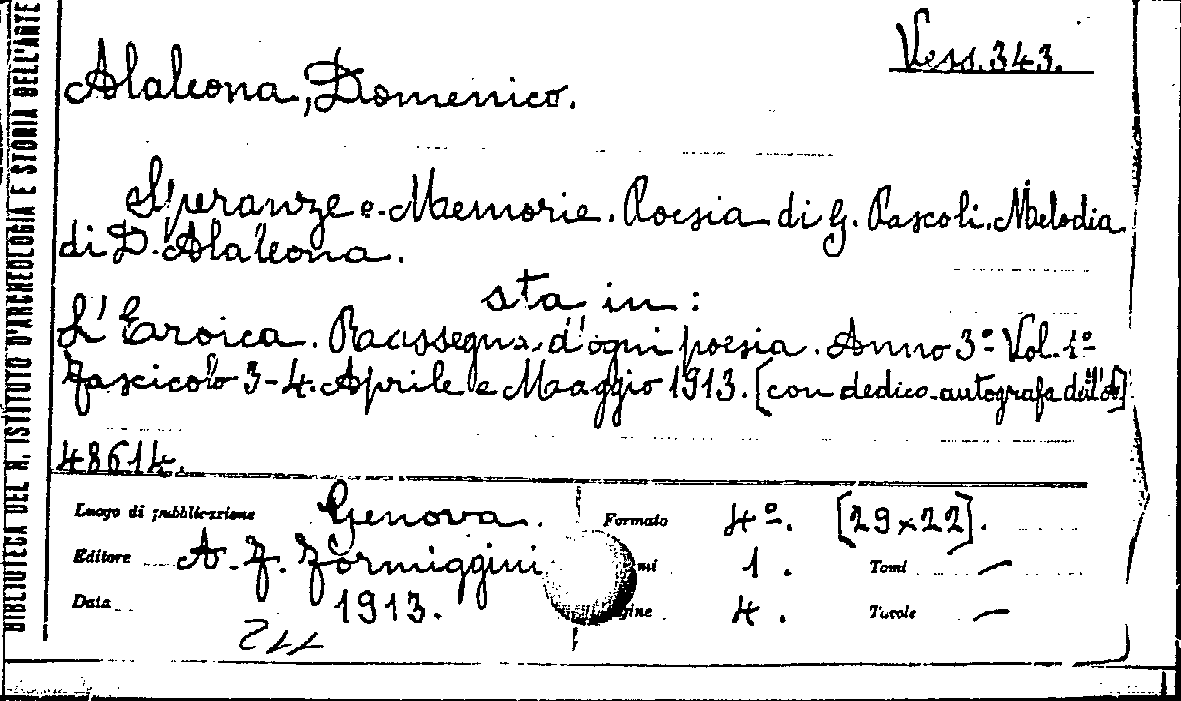 BIBLIOTECA DEL R. ISTITUTO D'ARCHEOLOGIA E STORIA DELL'ARTE
Vess. 343.
Alaleona, Domenico.
Speranze e Memorie. Poesia di G. Pascoli. Melodia
di D. Alaleona.
sta in:
L'Eroica. Rassegna d'ogni poesia. Anno 3º Vol. 1º
Fascicolo 3-4. Aprile e Maggio 1913. [con dedica autografa dell'A]
48614.
Luogo di pubblicazione Genova. Formato 4º. [29x22].
Editore A. F. Formiggini mi 1. Tomi —
Data 1913. gine 4. Tavole —